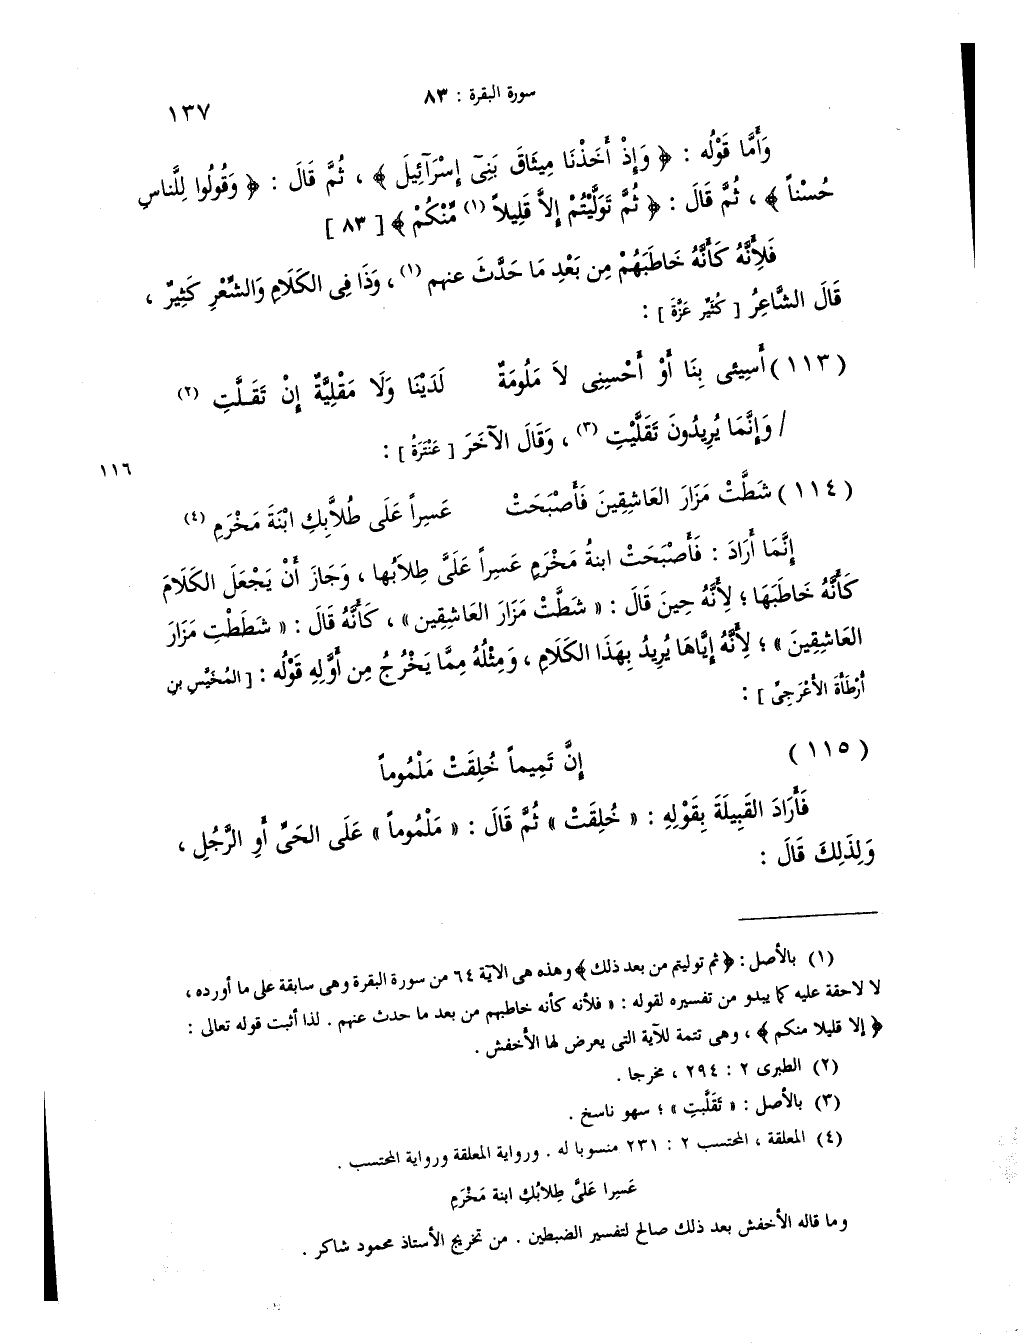 سورة البقرة : ٨٣
١٣٧
وَأَمَّا قَوْلُه : ﴿ وَإِذْ أَخَذْنَا مِيثَاقَ بَنِىٓ إِسْرَآئِيلَ ﴾ ، ثُمَّ قَالَ : ﴿ وَقُولُوا لِلنَّاسِ
حُسْناً ﴾ ، ثُمَّ قَالَ : ﴿ ثُمَّ تَوَلَّيْتُمْ إِلاَّ قَلِيلاً (١) مِّنْكُمْ ﴾ [ ٨٣ ]
فَلِأَنَّهُ كَأَنَّهُ خَاطَبَهُمْ مِن بَعْدِ مَا حَدَّثَ عنهم (١) ، وَذَا فِى الكَلَامِ وَالشِّعْرِ كَثِيرٌ ،
قَالَ الشَّاعِرُ [ كُثَيِّر عَزَّةَ ] :
( ١١٣ ) أَسِيئى بِنَا أَوْ أَحْسِنِى لاَ مَلُومَةٌ لَدَيْنَا وَلَا مَقْلِيَّةٌ إِنْ تَقَـلَّتِ (٢)
/ وَإِنَّمَا يُرِيدُونَ تَقَلَّيْتِ (٣) ، وَقَالَ الآخَرَ [ عَنْتَرَةُ ] :
١١٦
( ١١٤ ) شَطَّتْ مَزَارَ العَاشِقِينَ فَأَصْبَحَتْ عَسِراً عَلَى طُلاَّبِكِ ابْنَةَ مَخْرَمِ (٤)
إِنَّمَا أَرَادَ : فَأَصْبَحَتْ ابنةُ مَخْرَمٍ عَسِراً عَلَىَّ طِلاَبُها ، وَجَازَ أَنْ يَجْعَلَ الكَلَامَ
كَأَنَّهُ خَاطَبَهَا ؛ لِأَنَّهُ حِينَ قَالَ : « شَطَّتْ مَزَارَ العَاشِقِين » ، كَأَنَّهُ قَالَ : « شَطَطْتِ مَزَارَ
العَاشِقِينَ » ؛ لِأَنَّهُ إِيَّاهَا يُرِيدُ بِهَذَا الكَلَامِ ، وَمِثْلُهُ مِمَّا يَخْرُجُ مِن أَوَّلِهِ قَوْلُه : [ المُخَيَّسِ بنِ
أَرْطَأةَ الأَعْرَجِىِّ ] :
( ١١٥ ) إِنَّ تَمِيماً خُلِقَتْ مَلْمُوماً
فَأَرَادَ القَبِيلَةَ بِقَوْلِهِ : « خُلِقَتْ » ثُمَّ قَالَ : « مَلْمُوماً » عَلَى الحَىِّ أَوِ الرَّجُلِ ،
وَلِذَلِكَ قَالَ :
(١) بالأصل : ﴿ ثم توليتم من بعد ذلك ﴾ وهذه هى الآية ٦٤ من سورة البقرة وهى سابقة على ما أورده ،
لا لاحقة عليه كما يبدو من تفسيره لقوله : « فلأنه كأنه خاطبهم من بعد ما حدث عنهم . لذا أثبت قوله تعالى :
﴿ إلا قليلا منكم ﴾ ، وهى تتمة للآية التى يعرض لها الأخفش .
(٢) الطبرى ٢ : ٢٩٤ ، مخرجا .
(٣) بالأصل : « تَقَلَّبتِ » ؛ سهو ناسخ .
(٤) المعلقة ، المحتسب ٢ : ٢٣١ منسوبا له . ورواية المعلقة ورواية المحتسب .
عَسِرا عَلىَّ طِلابُكِ ابنة مَخْرَمِ
وما قاله الأخفش بعد ذلك صالح لتفسير الضبطين . من تخريج الأستاذ محمود شاكر .